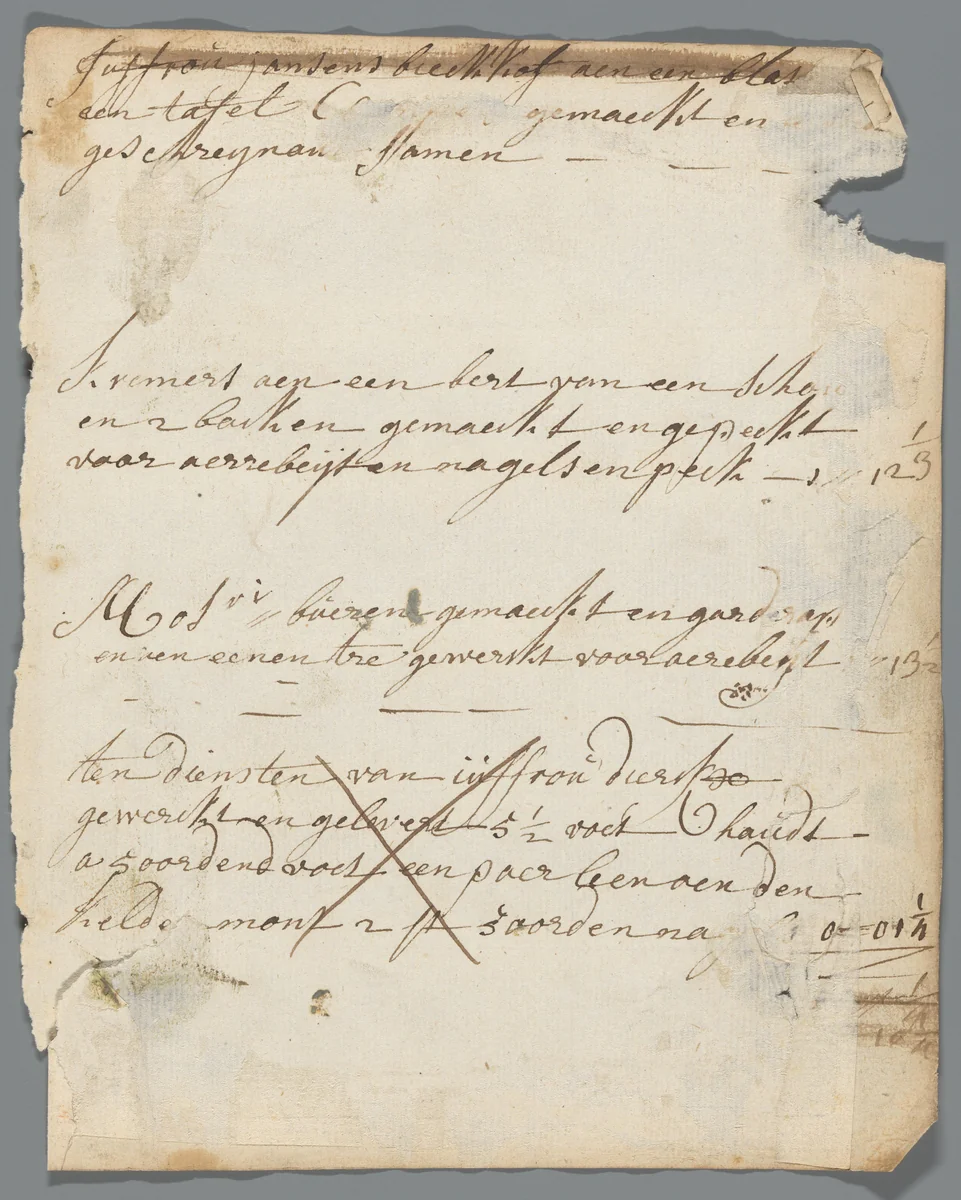 Juffrou jansens bleekhof aen een blat
een tafel gemaeckt en
geschreynau samen — — —
Kremers aen een bert van een schou
en 2 backen gemaeckt en gepeckt
voor aerrebeijt en nagels en peck — 12 1/3
Mos bueren gemaeckt en garderap
en aen eenen tre gewerckt voor aerebeyt 13 1/2
ten diensten van iuffrou dierck
gewerckt en gelevert 5 1/2 voet haudt
a 5 oorden d voet een paer leen aen den
kelder mont 2 st 3 oorden na 0 = 01 1/4